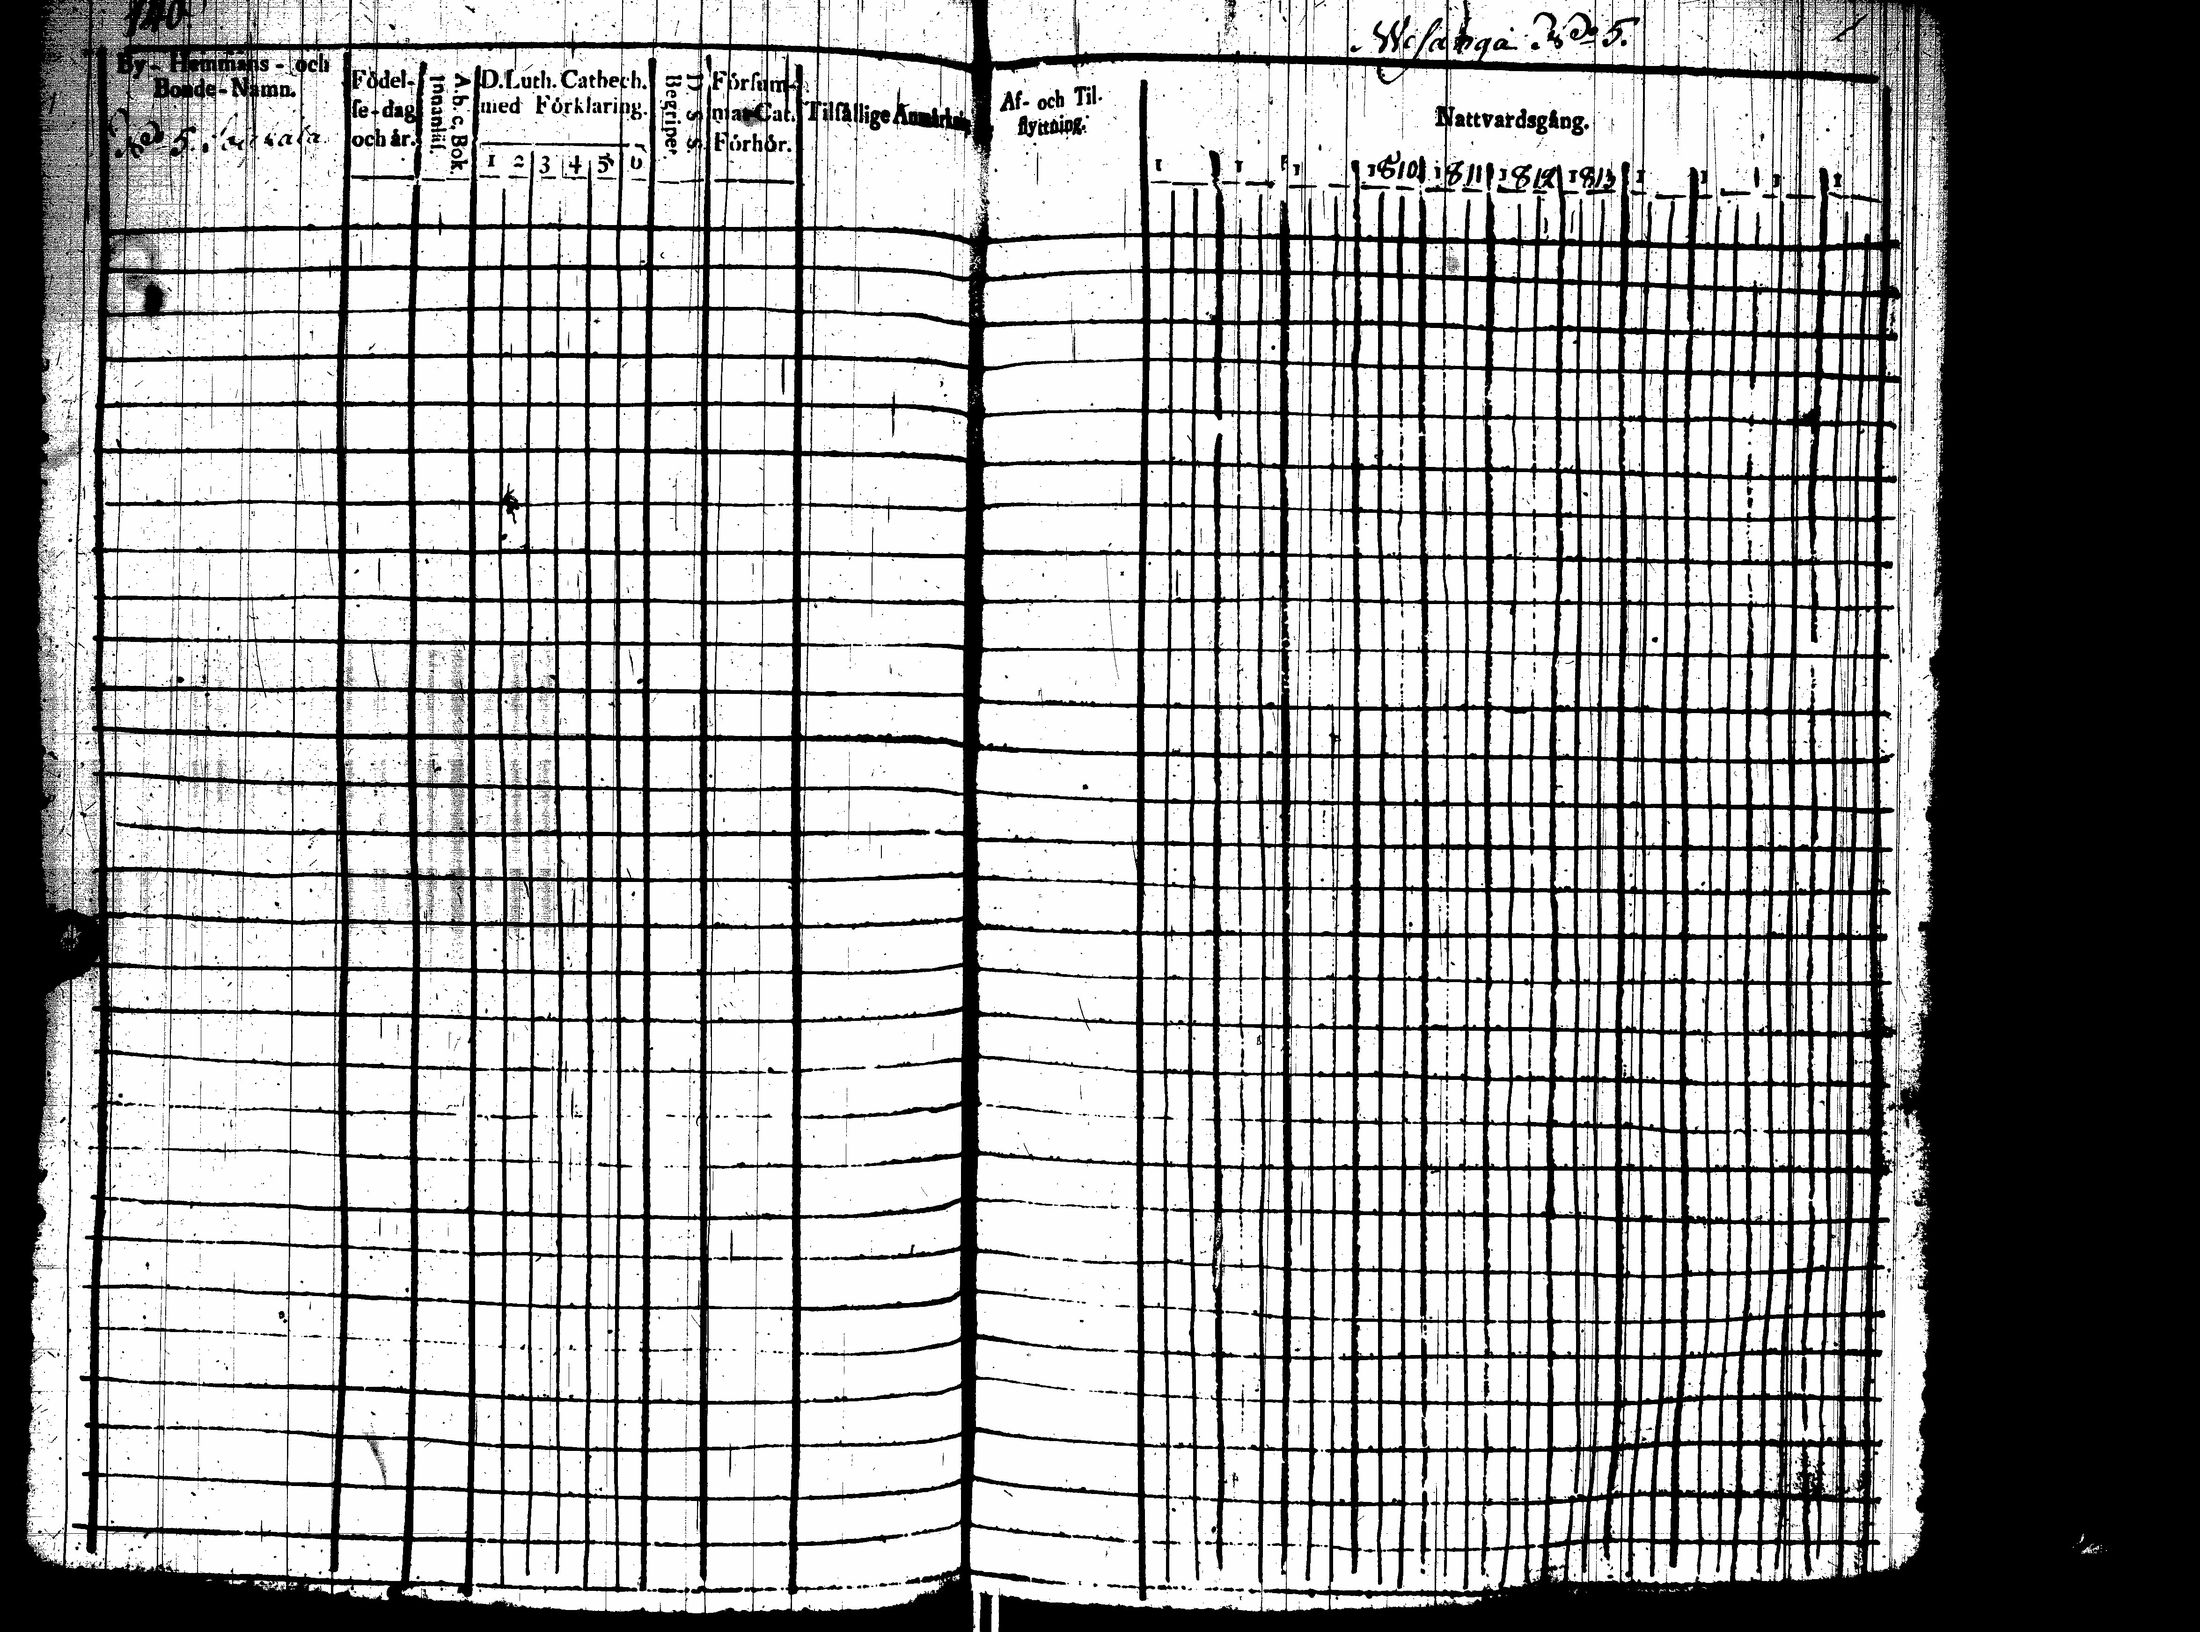 140
Wesanga No 5.
By- Hemmans- och
Bonde-Namn.
No 5.
Födel-
se-dag
och år.
A.b.c.Bok.
Innantil.
D. Luth. Cathech.
med Förklaring.
1 2 3 4 5 6
Begriper.
D S S
Försum-
mat Cat.
Förhör.
Tilfällige Anmärkn.
Af- och Til-
flyttning.
Nattvardsgång.
1 1 1 1810 1811 1812 1813 1 1 1 1